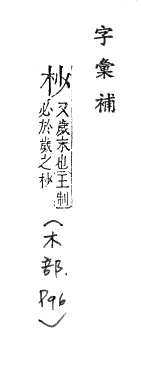 字彙補
杪又歲末也王制
必於歲之杪
(木部. P96)